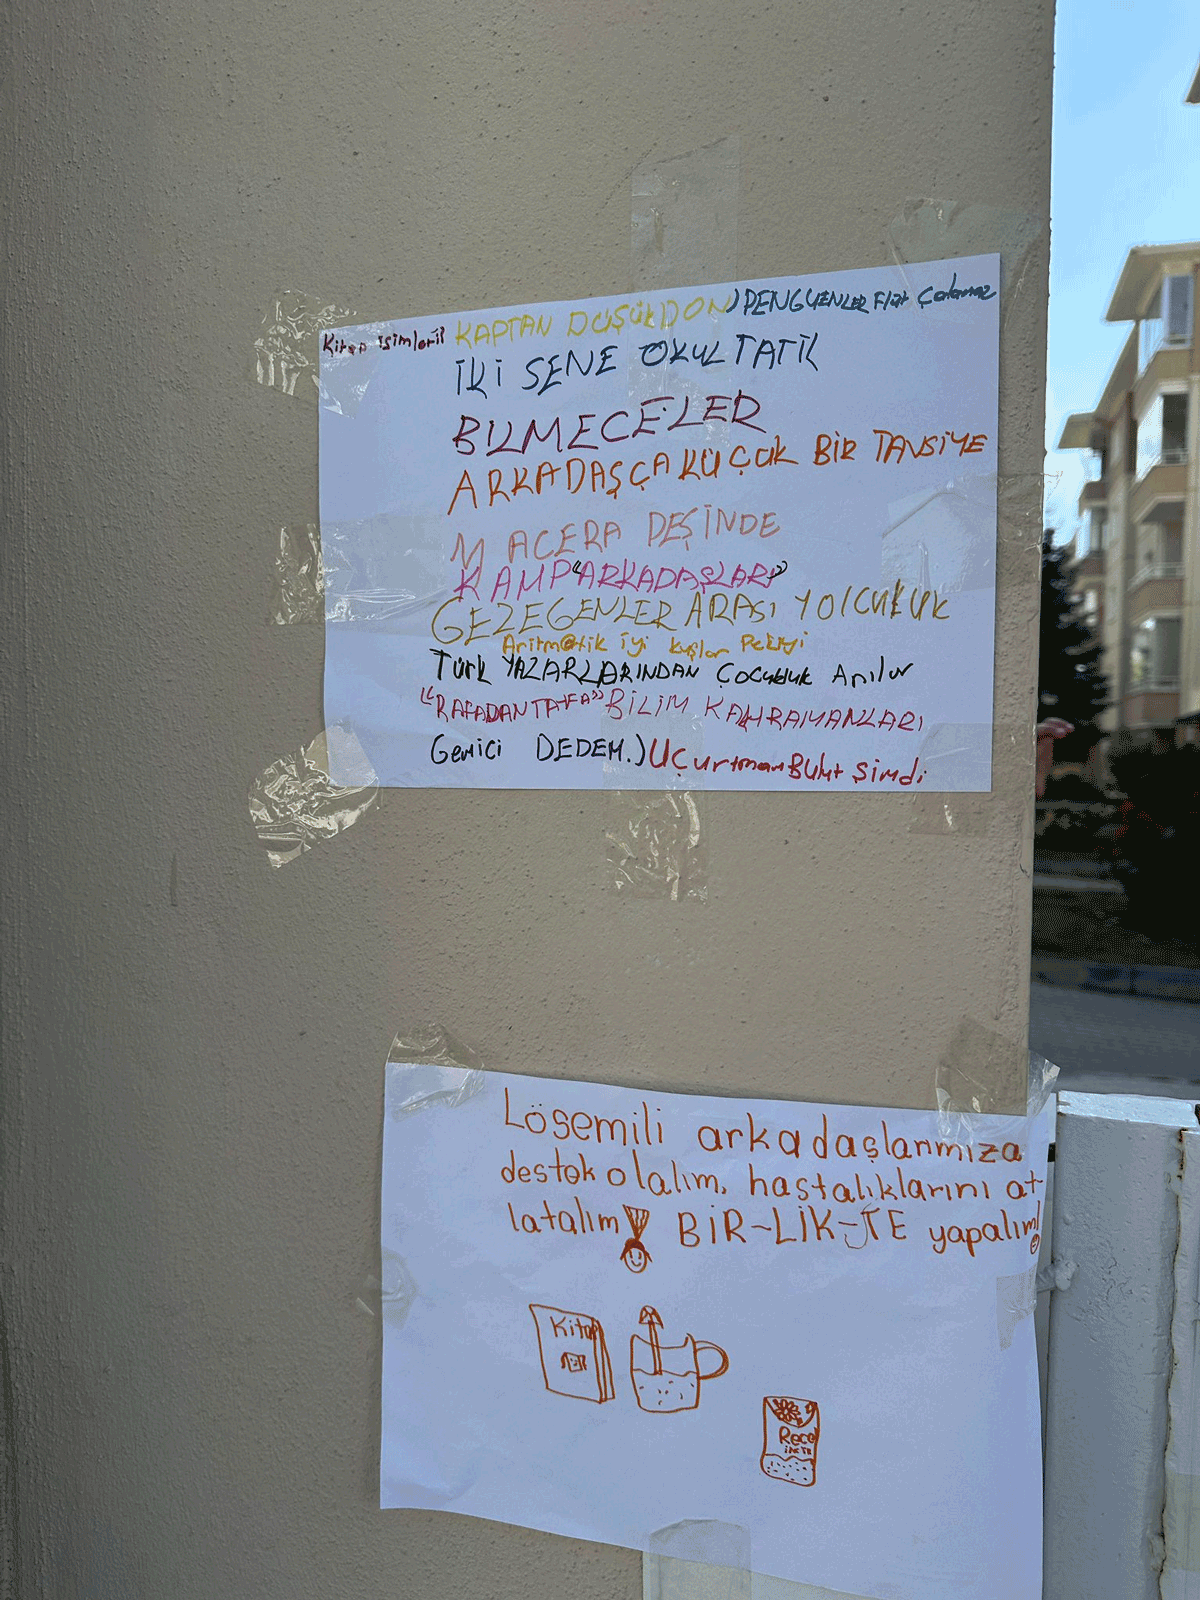 Kitap isimleri KAPTAN DÜŞÜKDON) PENGUENLER Flüt Çalamaz
İKİ SENE OKUL TATİL
BİLMECELER
ARKADAŞÇA KÜÇÜK BİR TAVSİYE
MACERA PEŞİNDE
KAMP "ARKADAŞLARI"
GEZEGENLER ARASI YOLCULUK
Aritmetik iyi kuşlar Pekiyi
Türk YAZARLARINDAN Çocukluk Anıları
"RAFADAN TAYFA" BİLİM KAHRAMANLARI
Gemici DEDEM.) Uçurtmam Bulut Şimdi
Lösemili arkadaşlarımıza
destek olalım, hastalıklarını at-
latalım BİR-LİK-TE yapalım!
Kitap
Reçel